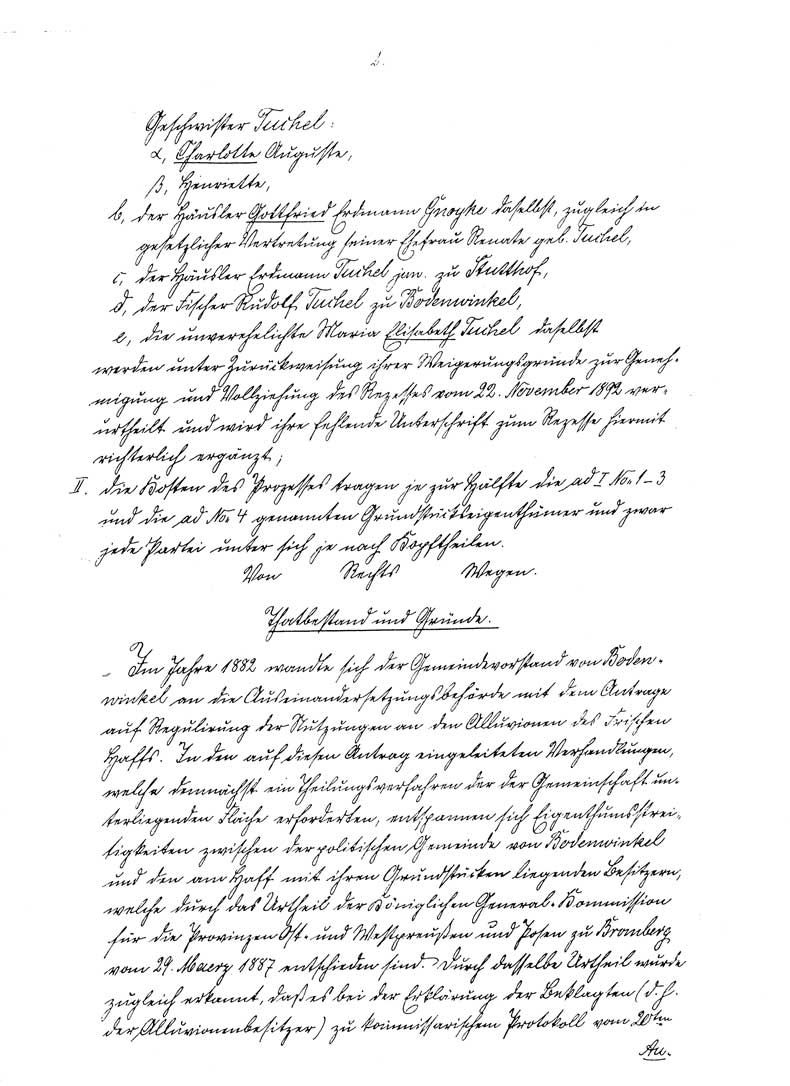 2.
Geschwister Tuchel:
α, Charlotte Auguste,
β, Henriette,
b, der Häusler Gottfried Erdmann Gnoyke daselbst, zugleich in
gesetzlicher Vertretung seiner Ehefrau Renate geb. Tuchel,
c, der Häusler Erdmann Tuchel jun. zu Stutthof,
d, der Fischer Rudolf Tuchel zu Bodenwinkel,
e, die unverehelichte Maria Elisabeth Tuchel daselbst
werden unter Zurückweisung ihrer Weigerungsgründe zur Geneh-
migung und Vollziehung des Rezesses vom 22. November 1892 ver-
urtheilt und wird ihre fehlende Unterschrift zum Rezesse hiermit
richterlich ergänzt;
II. die Kosten des Prozesses tragen je zur Hälfte die ad I No. 1-3
und die ad No. 4 genannten Grundstückseigenthümer und zwar
jede Partei unter sich je nach Kopftheilen.
Von Rechts Wegen.
Thatbestand und Gründe.
Im Jahre 1882 wandte sich der Gemeindevorstand von Boden-
winkel an die Auseinandersetzungsbehörde mit dem Antrage
auf Regulirung der Nutzungen an den Alluvionen des Frischen
Haffs. In den auf diesen Antrag eingeleiteten Verhandlungen,
welche demnächst ein Theilungsverfahren der der Gemeinschaft un-
terliegenden Fläche erforderten, entspannen sich Eigenthumsstrei-
tigkeiten zwischen der politischen Gemeinde von Bodenwinkel
und den am Haff mit ihren Grundstücken liegenden Besitzern,
welche durch das Urtheil der Königlichen General-Kommission
für die Provinzen Ost- und Westpreußen und Posen zu Bromberg
vom 29. Maerz 1887 entschieden sind. Durch dasselbe Urtheil wurde
zugleich erkannt, daß es bei der Erklärung der Beklagten (d. h.
der Alluvionenbesitzer) zu kommissarischem Protokoll vom 20ten
Au-